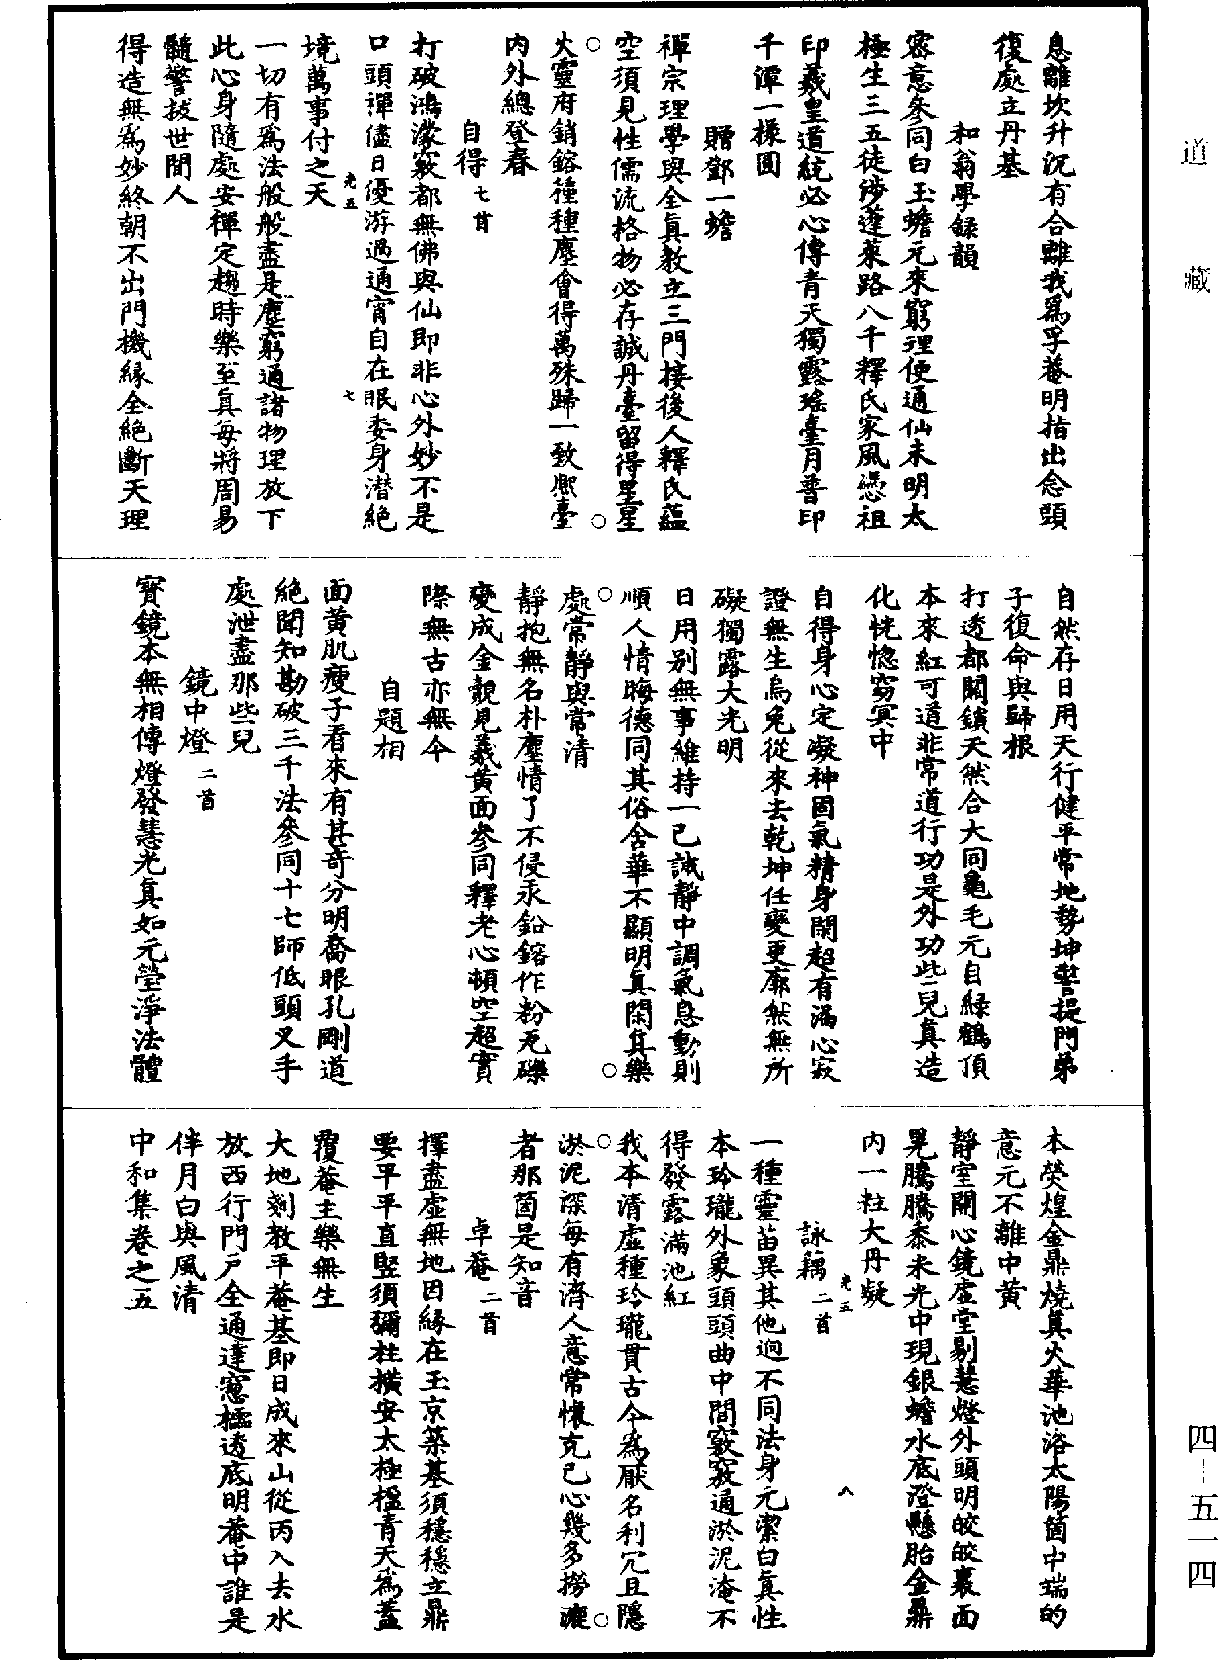 道藏
息離坎升沉有合離我爲孚菴明指出念頭
復處立丹基
和翁學錄韻
密意參同白玉蟾元來窮理便通仙未明太
極生三五徒涉蓬萊路八千釋氏家風憑祖
印羲皇道統必心傳青天獨露瑤臺月普印
千潭一樣圓
贈鄧一蟾
禪宗理學與全真教立三門接後人釋氏蘊
空須見性儒流格物必存誠丹臺留得星星
○ ○
火靈府銷鎔種種塵會得萬殊歸一致熈臺
內外總登春
自得七首
打破鴻濛竅都無佛與仙即非心外妙不是
口頭禪儘日優游過通宵自在眠委身潛絕
光五 七
境萬事付之天
一切有爲法般般盡是塵窮通諸物理放下
此心身隨處安禪定趨時樂至真每將周易
髓警拔世間人
得造無爲妙終朝不出門機緣全絕斷天理
自然存日用天行健平常地勢坤誓提門弟
子復命與歸根
打透都關鎖天然合大同龜毛元自綠鶴頂
本來紅可道非常道行功是外功些兒真造
化恍惚窈冥中
自得身心定凝神固氣精身閑超有漏心寂
證無生烏兔從來去乾坤任變更廓然無所
礙獨露大光明
日用別無事維持一己誠靜中調氣息動則
順人情晦德同其俗含華不顯明真閑真樂
○ ○
處常靜與常清
靜抱無名朴塵情了不侵汞鉛鎔作粉瓦礫
變成金覿見羲黃面參同釋老心頓空超實
際無古亦無今
自題相
面黃肌瘦子看來有甚奇分明喬眼孔剛道
絕聞知勘破三千法參同十七師低頭叉手
處泄盡那些兒
鏡中燈二首
寶鏡本無相傳燈發慧光真如元瑩淨法體
本熒煌金鼎燒真火華池浴太陽箇中端的
意元不離中黃
靜室開心鏡虛堂剔慧燈外頭明皎皎裏面
晃騰騰黍米光中現銀蟾水底澄懸胎金鼎
內一粒大丹凝
光五 八
詠藕二首
一種靈苗異其他迥不同法身元潔白真性
本玲瓏外象頭頭曲中間竅竅通淤泥淹不
得發露滿池紅
我本清虛種玲瓏貫古今爲厭名利冗且隱
○ ○
淤泥深每有濟人意常懷克己心幾多撈漉
者那箇是知音
卓菴二首
擇盡虛無地因緣在玉京築基須穩穩立鼎
要平平直豎須彌柱橫安太極楹青天爲蓋
覆菴主樂無生
大地剗教平菴基即日成來山從丙入去水
放西行門戶全通達窓櫺透底明菴中誰是
伴月白與風清
中和集卷之五
四-五一四